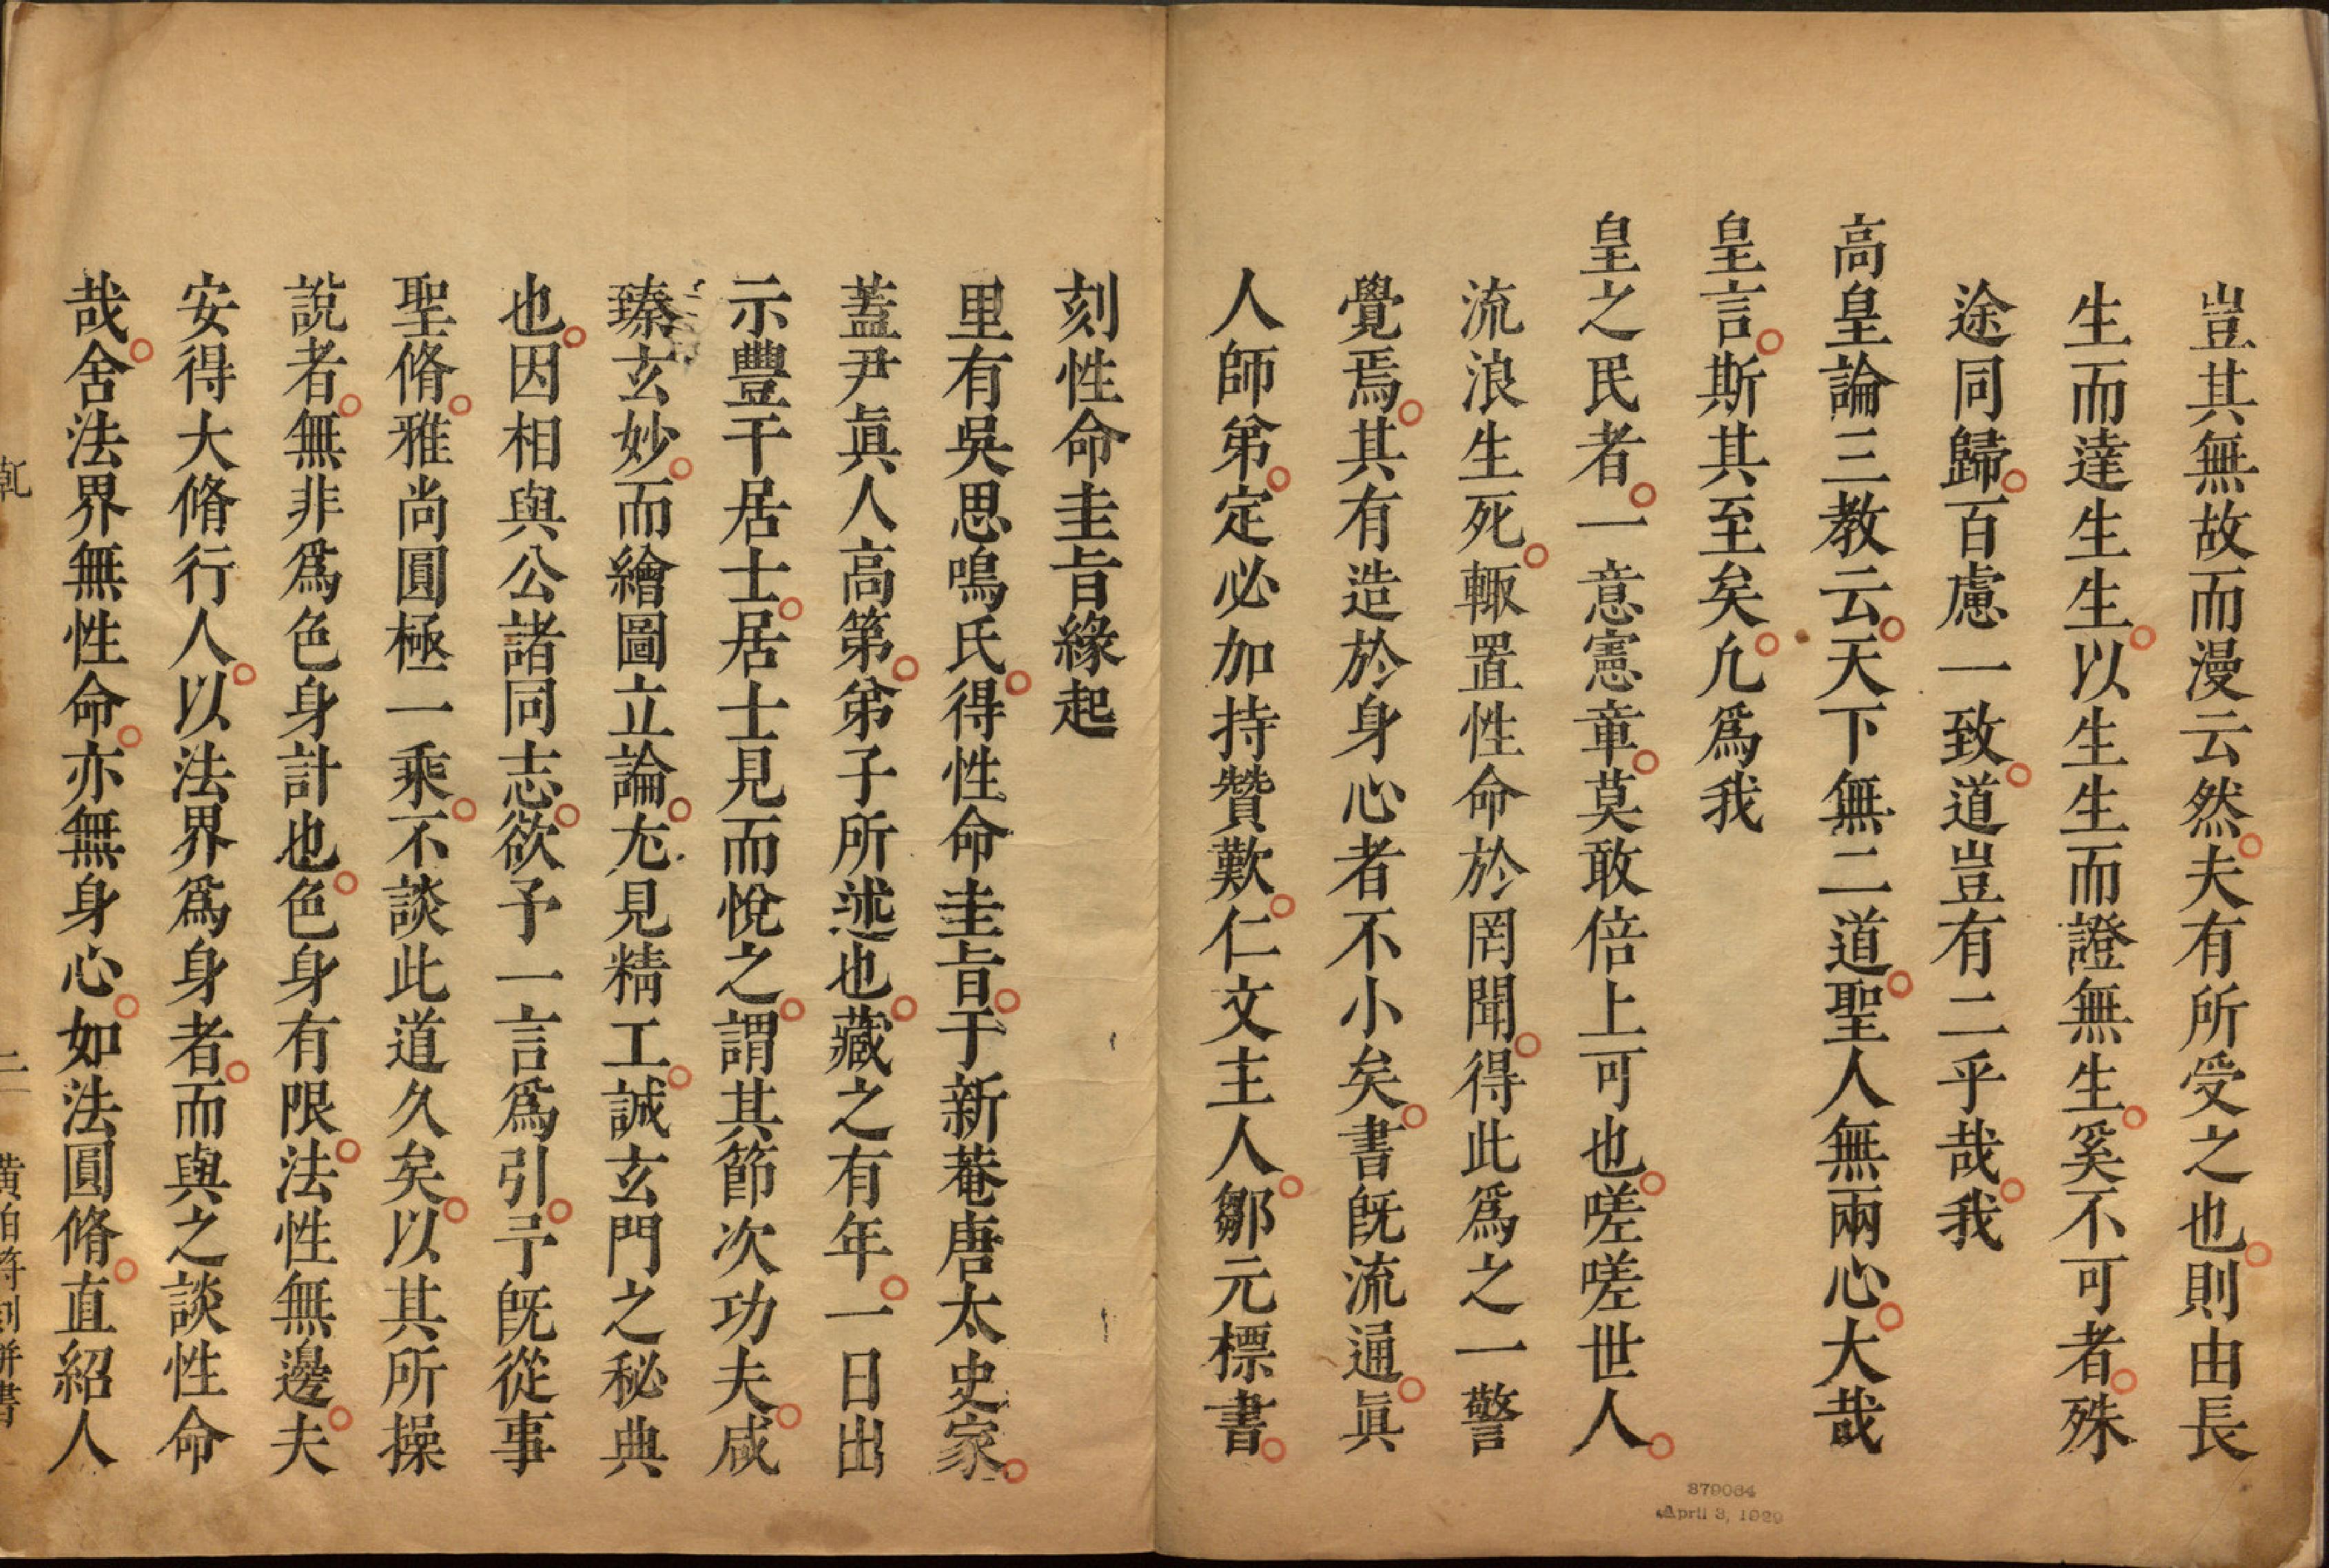 豈其無故而漫云然。夫有所受之也。則由長
生而達生生。以生生而證無生。奚不可者。殊
途同歸。百慮一致。道豈有二乎哉。我
高皇論三教云。天下無二道。聖人無兩心。大哉
皇言。斯其至矣。凢爲我
皇之民者。一意憲章。莫敢倍上可也。嗟嗟世人。
流浪生死。輙置性命於罔聞。得此爲之一警
覺焉。其有造於身心者不小矣。書旣流通。眞
人師弟。定必加持贊歎。仁文主人。鄒元標書。
刻性命圭旨緣起
里有吳思鳴氏。得性命圭旨。于新菴唐太史家。
蓋尹眞人高第。弟子所述也。藏之有年。一日出
示豐干居士。居士見而悅之。謂其節次功夫。咸
臻玄妙。而繪圖立論。尢見精工。誠玄門之秘典
也。因相與公諸同志。欲予一言爲引。予旣從事
聖脩。雅尚圓極一乘。不談此道久矣。以其所操
說者。無非爲色身計也。色身有限。法性無邊。夫
安得大脩行人。以法界爲身者。而與之談性命
哉。舍法界無性命。亦無身心。如法圓脩。直紹人
二
黃伯符刻併書
879064
April 3, 1929